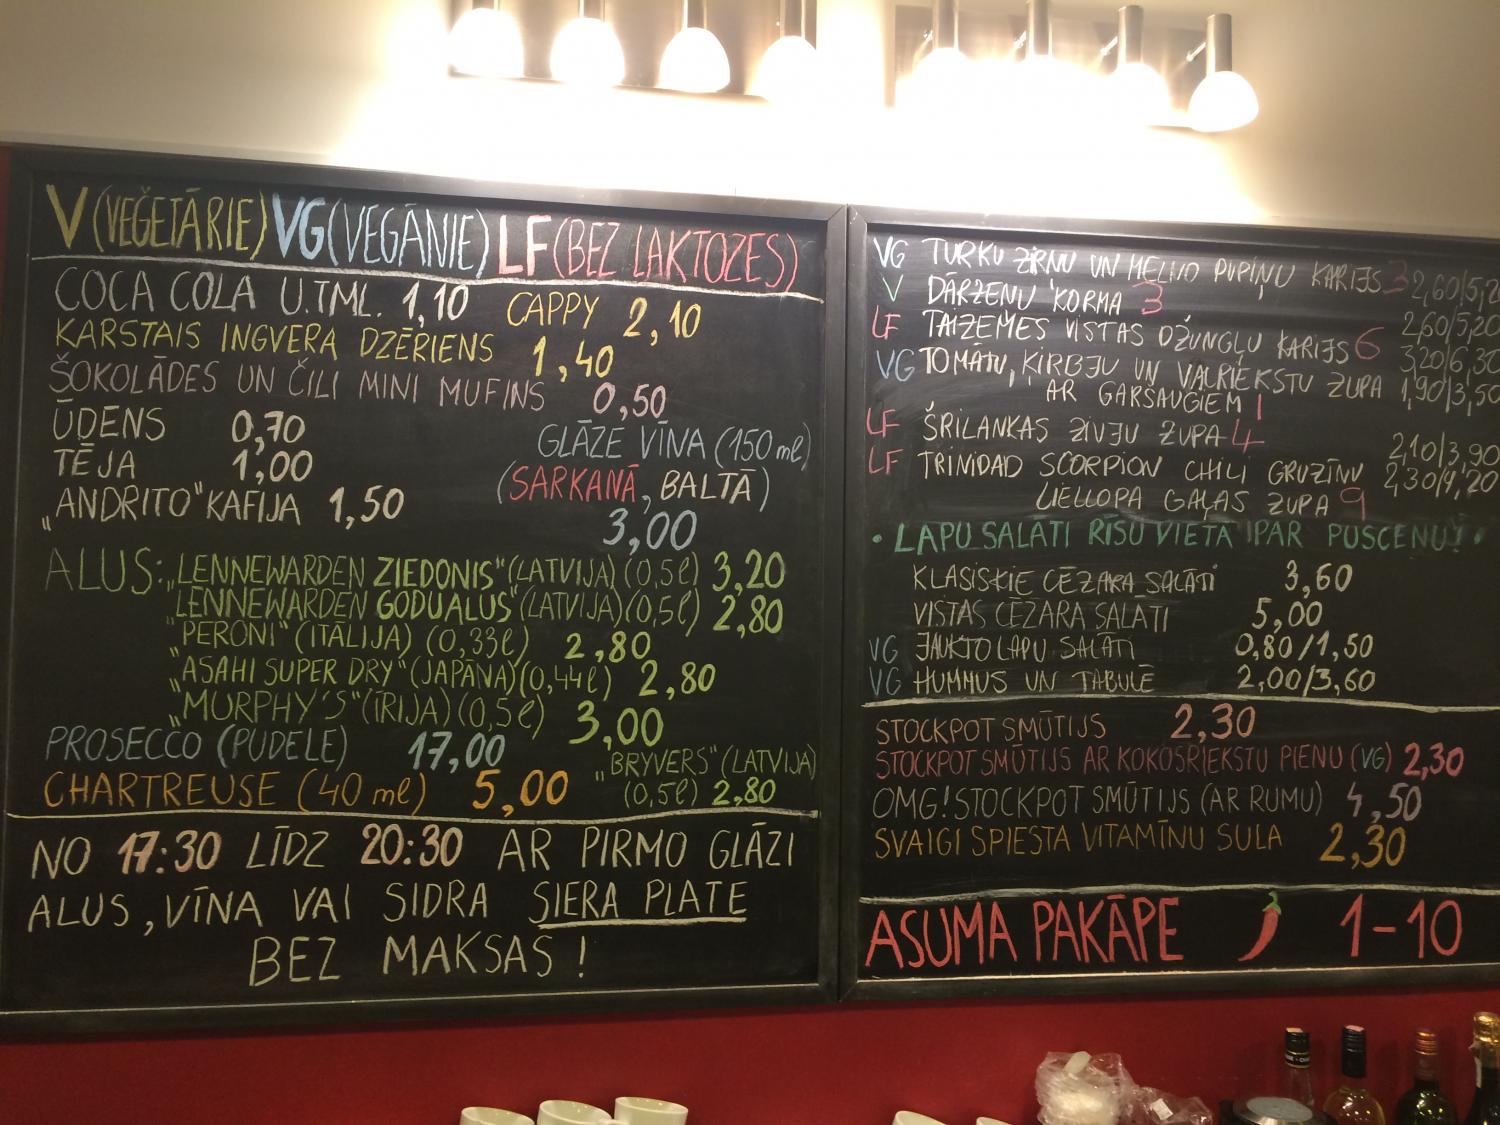 V (VEĢETĀRIE) VG (VEGĀNIE) LF (BEZ LAKTOZES)
COCA COLA U.TML. 1,10 CAPPY 2,10
KARSTAIS INGVERA DZĒRIENS 1,40
ŠOKOLĀDES UN ČILI MINI MUFINS 0,50
ŪDENS 0,70
TĒJA 1,00
„ANDRITO" KAFIJA 1,50
GLĀZE VĪNA (150 ml)
(SARKANĀ, BALTĀ)
3,00
ALUS: „LENNEWARDEN ZIEDONIS" (LATVIJA) (0,5l) 3,20
„LENNEWARDEN GODUALUS" (LATVIJA) (0,5l) 2,80
„PERONI" (ITĀLIJA) (0,33l) 2,80
„ASAHI SUPER DRY" (JAPĀNA) (0,44l) 2,80
„MURPHY'S" (ĪRIJA) (0,5l) 3,00
PROSECCO (PUDELE) 17,00
„BRYVERS" (LATVIJA)
(0,5l) 2,80
CHARTREUSE (40 ml) 5,00
NO 17:30 LĪDZ 20:30 AR PIRMO GLĀZI
ALUS, VĪNA VAI SIDRA SIERA PLATE
BEZ MAKSAS!
VG TURKU ZIRŅU UN MELNO PUPIŅU KARIJS 3 2,60/5,2
V DĀRZEŅU KORMA 3 2,60/5,20
LF TAIZEMES VISTAS DŽUNGĻU KARIJS 6 3,20/6,30
VG TOMĀTU, ĶIRBJU UN VALRIEKSTU ZUPA 1,90/3,50
AR GARŠAUGIEM 1
LF ŠRILANKAS ZIVJU ZUPA 4 2,10/3,90
LF TRINIDAD SCORPION CHILI GRUZĪNU 2,30/4,20
LIELLOPA GAĻAS ZUPA 9
• LAPU SALĀTI RĪSU VIETĀ PAR PUSCENU! •
KLASISKIE CĒZARA SALĀTI 3,60
VISTAS CĒZARA SALĀTI 5,00
VG JAUKTO LAPU SALĀTI 0,80/1,50
VG HUMMUS UN TABULĒ 2,00/3,60
STOCKPOT SMŪTIJS 2,30
STOCKPOT SMŪTIJS AR KOKOSRIEKSTU PIENU (VG) 2,30
OMG! STOCKPOT SMŪTIJS (AR RUMU) 4,50
SVAIGI SPIESTA VITAMĪNU SULA 2,30
ASUMA PAKĀPE 1-10